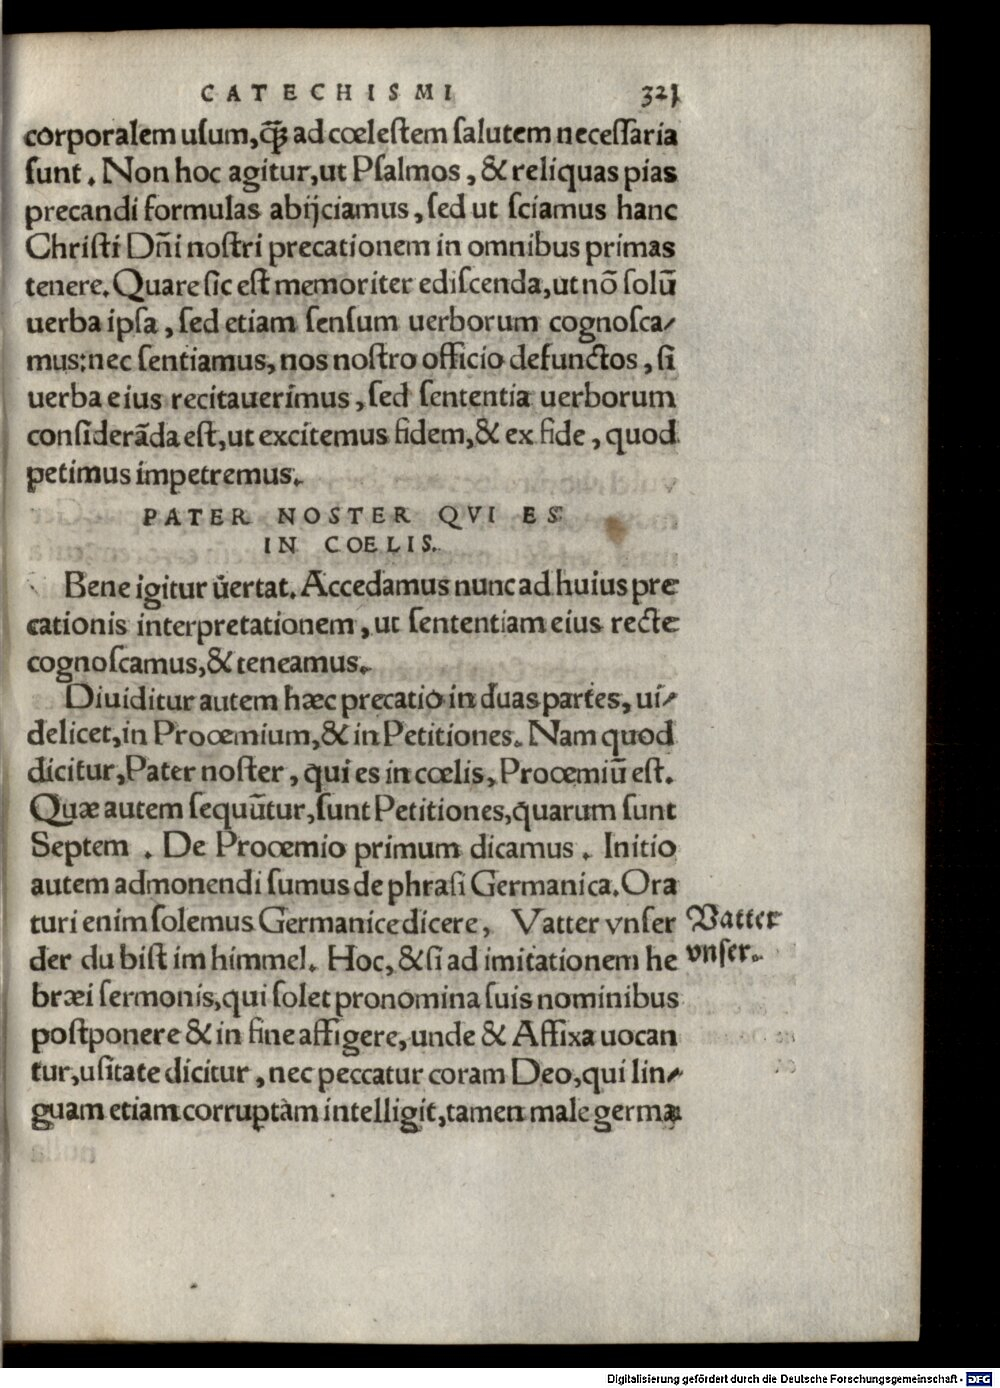 CATECHISMI 321
corporalem uſum, q̃ꝫ ad cœleſtem ſalutem neceſſaria
ſunt. Non hoc agitur, ut Pſalmos, & reliquas pias
precandi formulas abijciamus, ſed ut ſciamus hanc
Chriſti Dñi noſtri precationem in omnibus primas
tenere. Quare ſic eſt memoriter ediſcenda, ut nõ ſolũ
uerba ipſa, ſed etiam ſenſum uerborum cognoſca⸗
mus: nec ſentiamus, nos noſtro officio defunctos, ſi
uerba eius recitauerimus, ſed ſententia uerborum
conſiderãda eſt, ut excitemus fidem, & ex fide, quod
petimus impetremus.
PATER NOSTER QVI ES
IN COELIS.
Bene igitur uertat. Accedamus nunc ad huius pre
cationis interpretationem, ut ſententiam eius recte
cognoſcamus, & teneamus.
Diuiditur autem hæc precatio in duas partes, ui⸗
delicet, in Proœmium, & in Petitiones. Nam quod
dicitur, Pater noſter, qui es in cœlis, Proœmiũ eſt.
Quæ autem ſequũtur, ſunt Petitiones, quarum ſunt
Septem. De Proœmio primum dicamus. Initio
autem admonendi ſumus de phraſi Germanica. Ora
turi enim ſolemus Germanice dicere, Vatter vnſer
der du biſt im himmel. Hoc, & ſi ad imitationem he
bræi ſermonis, qui ſolet pronomina ſuis nominibus
poſtponere & in fine affigere, unde & Affixa uocan
tur, uſitate dicitur, nec peccatur coram Deo, qui lin⸗
guam etiam corruptam intelligit, tamen male germa
Vatter
vnſer.
Digitalisierung gefördert durch die Deutsche Forschungsgemeinschaft - DFG